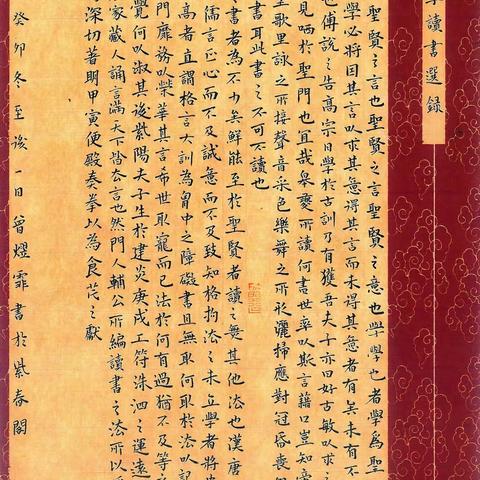 讀書選錄
聖賢之言也聖賢之言聖賢之意也學學也者學為聖
學必將因其言以求其意得其言而未得其意者有矣未有不
也傅說之告高宗曰學於古訓乃有獲吾夫子亦曰好古敏以求之
見哂於聖門也宜哉皋夔所讀何書世率以斯言藉口豈知
歌里詠之所接聲音采色樂舞之所形灑掃應對冠昏喪
書耳此書之不可不讀也
書者為不少矣鮮能至於聖賢者讀之無其他法也漢唐
儒言正心而不及誠意而不及致知格物法之未立學者將
高者直謂格言大訓為胷中之障礙書且無取何取於法以記
門靡務以榮華其言希世取寵而已法於何有過猶不及等
覺何以淑其後紫陽夫子生於建炎庚戌符洙泗之運遠
家藏人誦言滿天下皆言也然門人輔公所編讀書之法所以
深切著明甲寅便殿奏拳以為食芹之獻
癸卯冬至後一日曾熠霏書於紫春閣